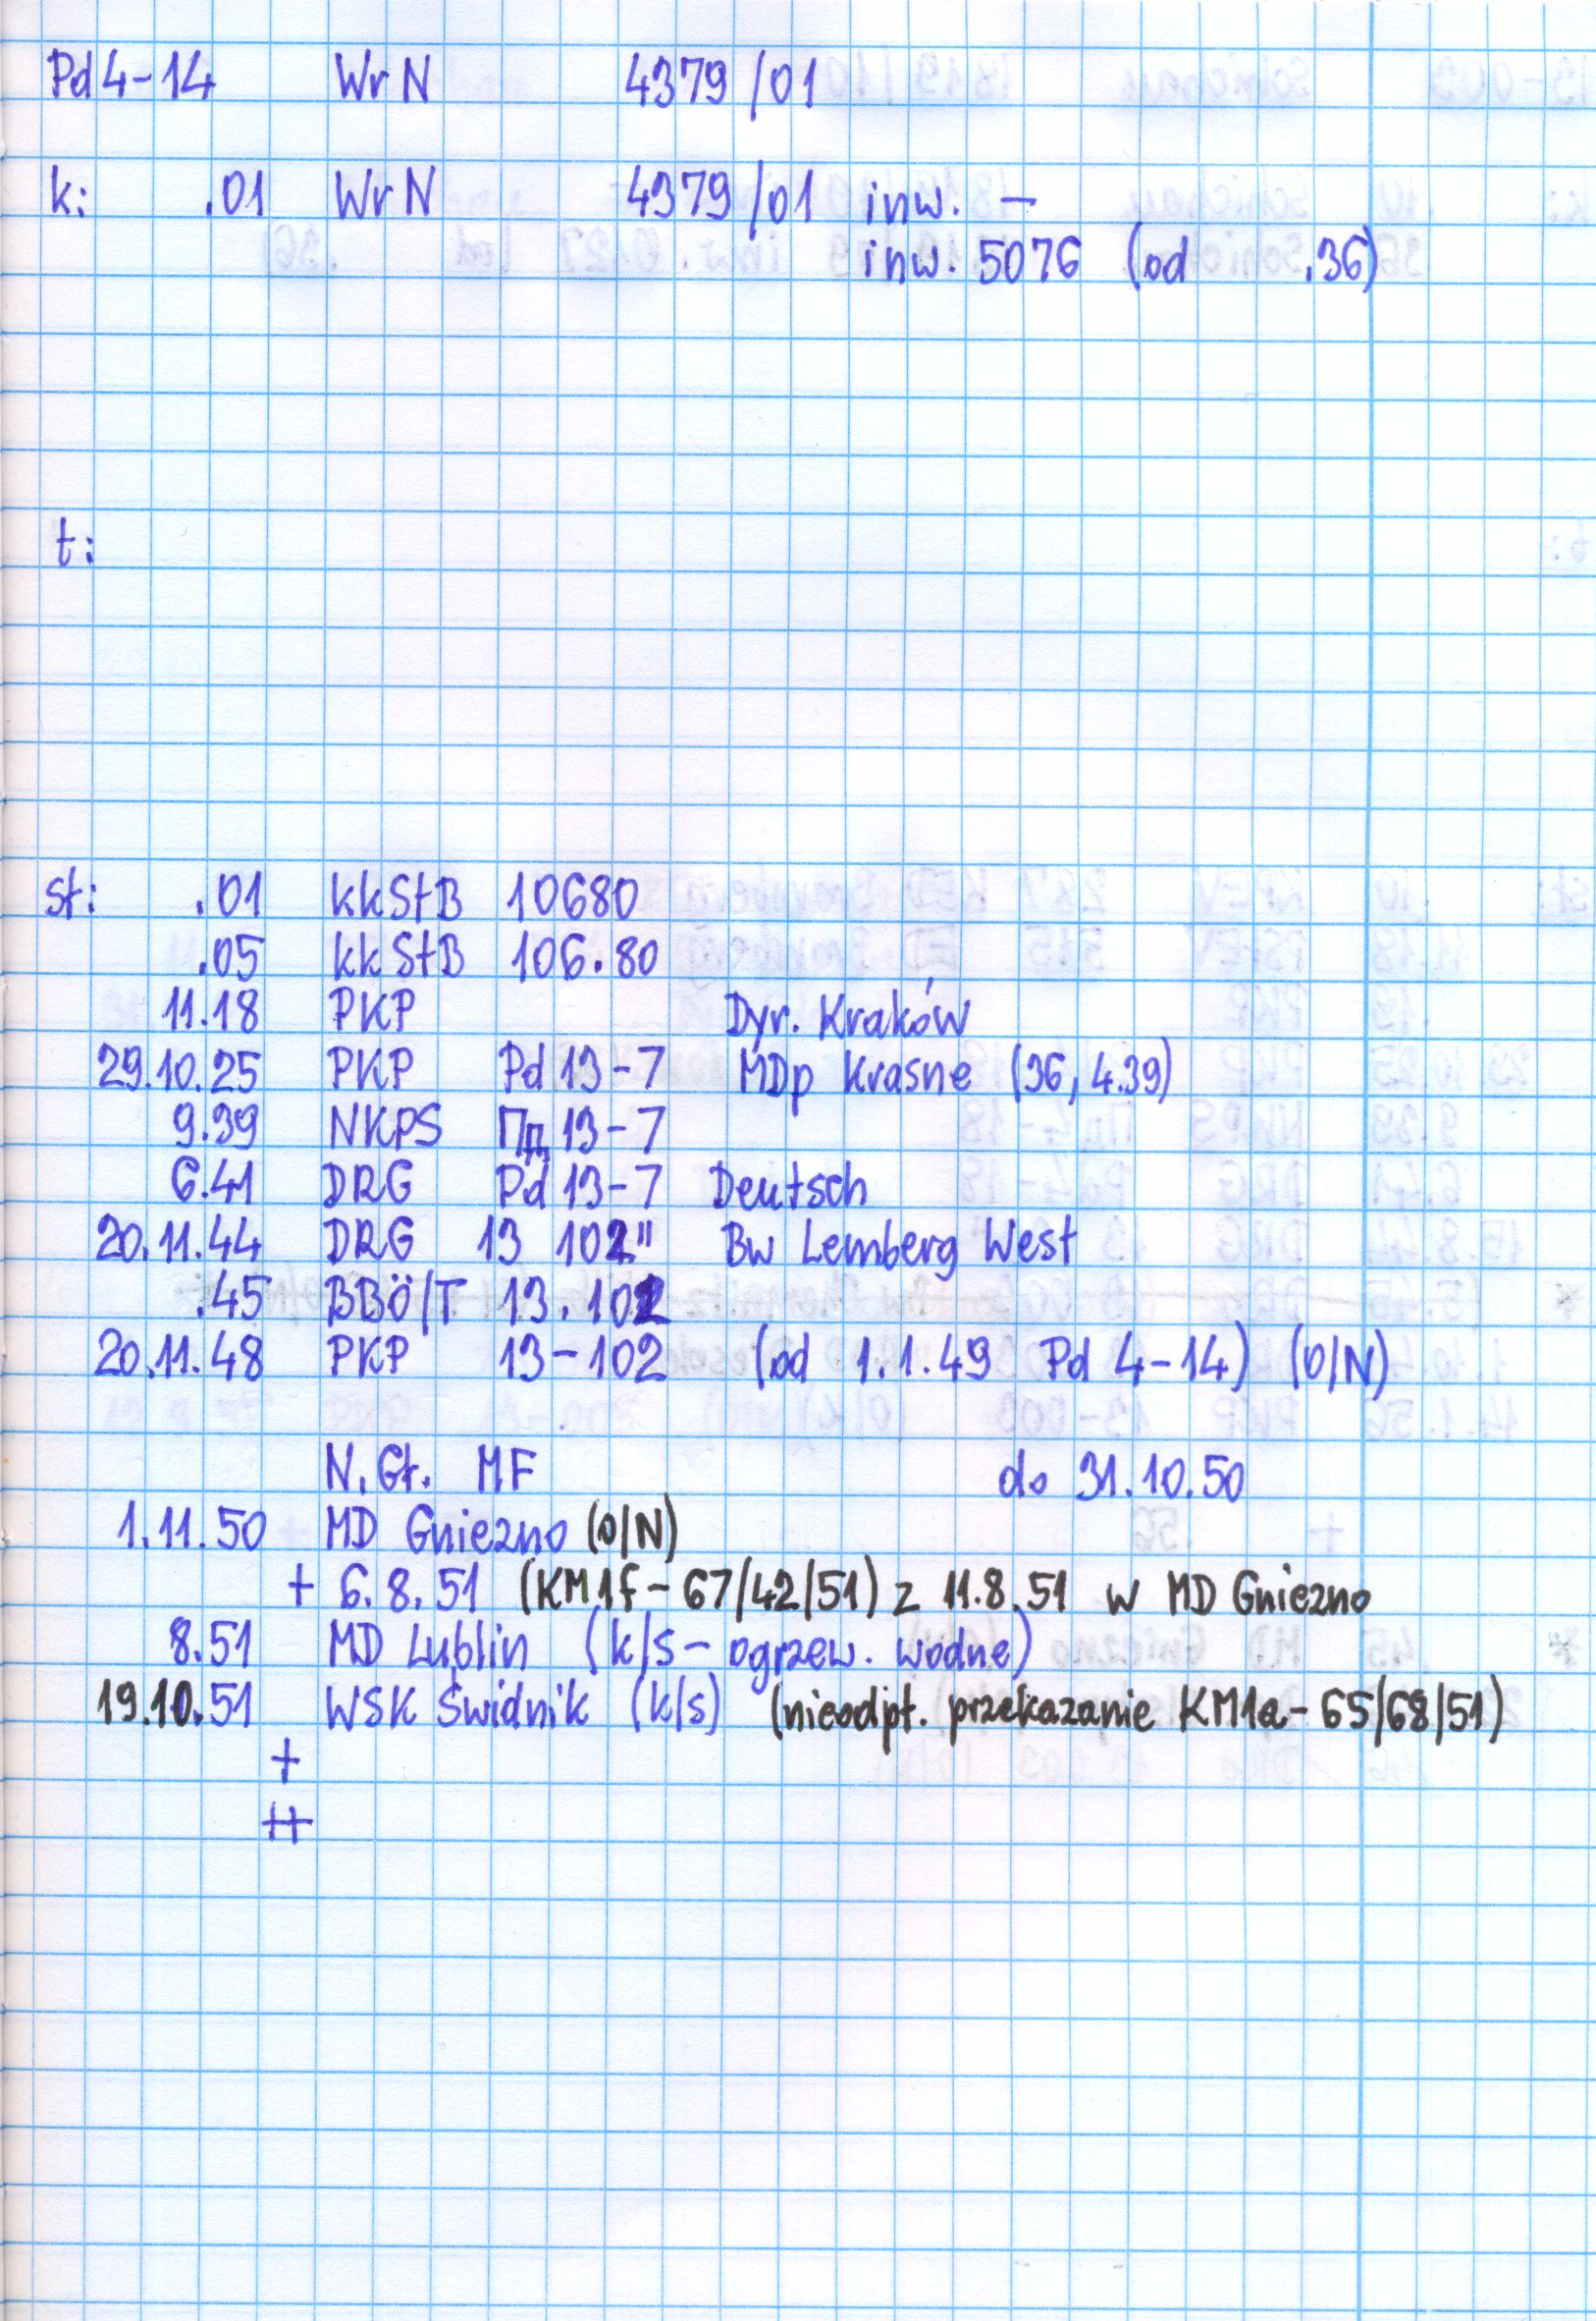 Pd4-14 WrN 4379/01
k: .01 WrN 4379/01 inw. —
inw. 5076 (od .36)
t:
st: .01 kkStB 10680
.05 kkStB 106.80
11.18 PKP Dyr. Kraków
29.10.25 PKP Pd13-7 MDp Krasne (36, 4.39)
9.39 NKPS Пд 13-7
6.41 DRG Pd13-7 Deutsch
20.11.44 DRG 13 102" Bw Lemberg West
.45 BBÖ/T 13.102
20.11.48 PKP 13-102 (od 1.1.49 Pd 4-14) (O/N)
N.Gł. MF do 31.10.50
1.11.50 MD Gniezno (O/N)
+ 6.8.51 (KM1f-67/42/51) z 11.8.51 w MD Gniezno
8.51 MD Lublin (k/s- ogrzew. wodne)
19.10.51 WSK Świdnik (k/s) (nieodpł. przekazanie KM1a-65/68/51)
+
++